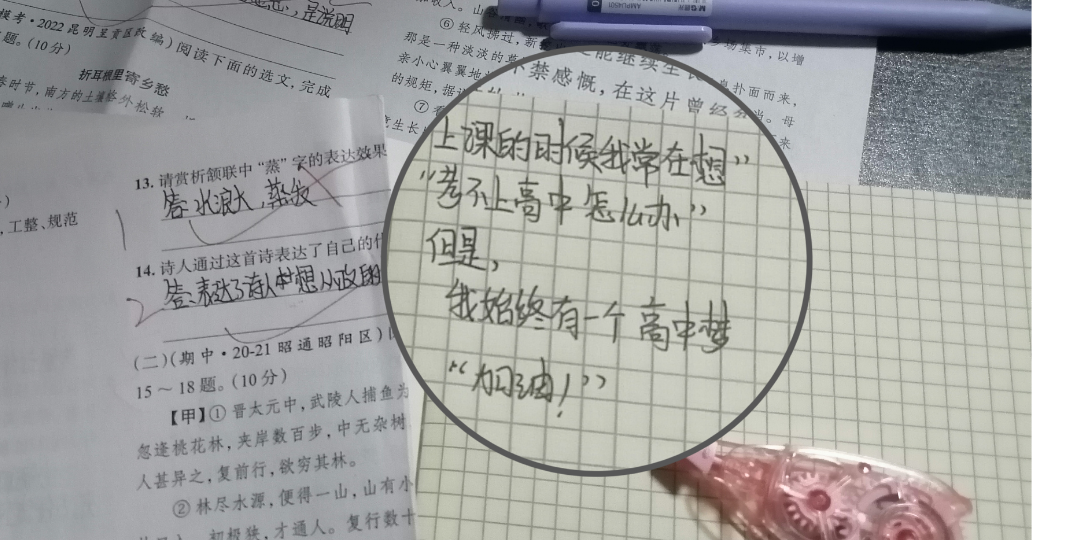 模考·2022 昆明呈贡区改编) 阅读下面的选文,完成
题。(10分)
折耳根里寄乡愁
春时节,南方的土壤格外松软
⑥ 轻风拂过,新
乡场集市,以增
那是一种淡淡的
能继续生长
扑面而来,
亲小心翼翼地
不禁感慨,在这片曾经
当。母
的规矩,据
⑦
意生长
工整、规范
13. 请赏析颔联中“蒸”字的表达效果
答:水浪大,蒸发
14. 诗人通过这首诗表达了自己的什
答:表达了诗人
(二)(期中·20-21 昭通昭阳区)
15～18题。(10分)
【甲】① 晋太元中,武陵人捕鱼为
忽逢桃花林,夹岸数百步,中无杂树
人甚异之,复前行,欲穷其林。
② 林尽水源,便得一山,山有小
初极狭,才通人。复行数十
上课的时候我常在想”
“考不上高中怎么办”
但是,
我始终有一个高中梦
“加油!”